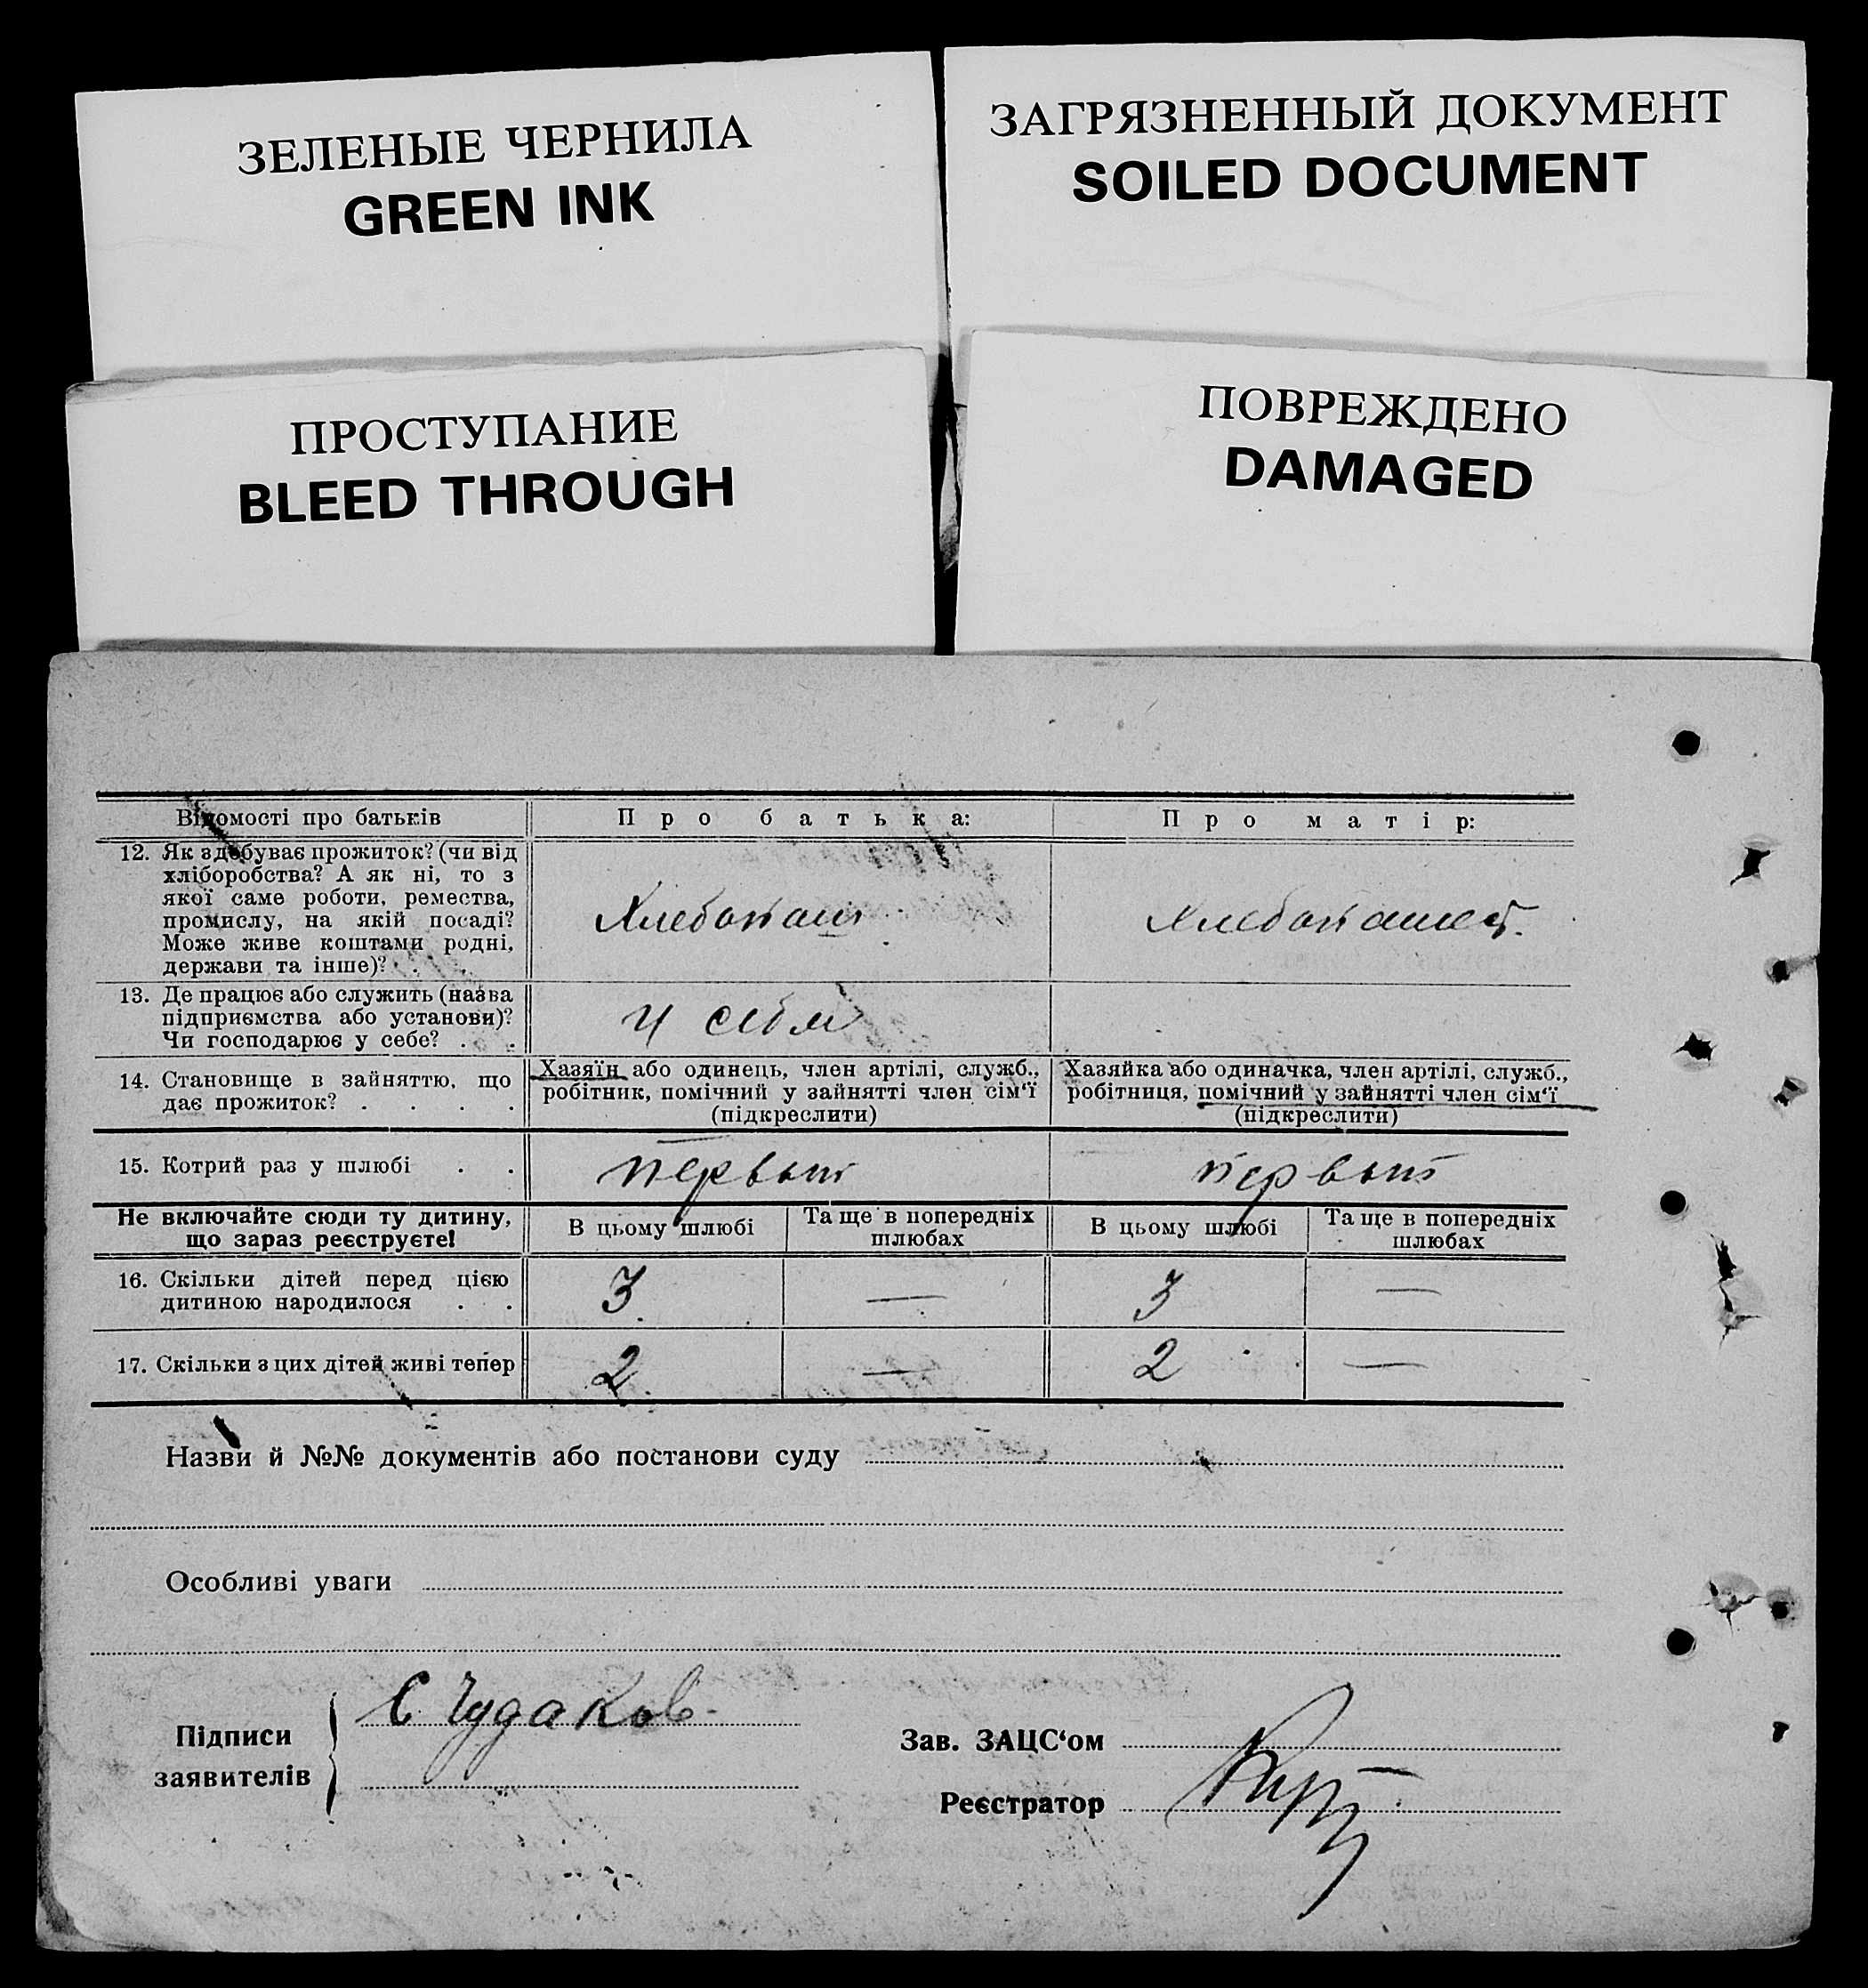 ЗЕЛЕНЫЕ ЧЕРНИЛА
GREEN INK
ЗАГРЯЗНЕННЫЙ ДОКУМЕНТ
SOILED DOCUMENT
ПРОСТУПАНИЕ
BLEED THROUGH
ПОВРЕЖДЕНО
DAMAGED
Відомості про батьків
Про батька:
Про матір:
12. Як здобуває прожиток? (чи від
хліборобства? А як ні, то з
якої саме роботи, ремества,
промислу, на якій посаді?
Може живе коштами родні,
держави та інше)? .
Хлебопаш
Хлебопашест.
13. Де працює або служить (назва
підприємства або установи)?
Чи господарює у себе? . .
У себя
14. Становище в зайняттю, що
дає прожиток? . . . .
Хазяїн або одинець, член артілі, служб.,
робітник, помічний у зайнятті член сім'ї
(підкреслити)
Хазяйка або одиначка, член артілі, служб.,
робітниця, помічний у зайнятті член сім'ї
(підкреслити)
15. Котрий раз у шлюбі . .
первый
первый
Не включайте сюди ту дитину,
що зараз реєструєте!
В цьому шлюбі
Та ще в попередніх
шлюбах
В цьому шлюбі
Та ще в попередніх
шлюбах
16. Скільки дітей перед цією
дитиною народилося . .
3
—
3
—
17. Скільки з цих дітей живі тепер
2
—
2
—
Назви й №№ документів або постанови суду
Особливі уваги
Підписи
заявителів
С Чудаков
Зав. ЗАЦС'ом
Реєстратор